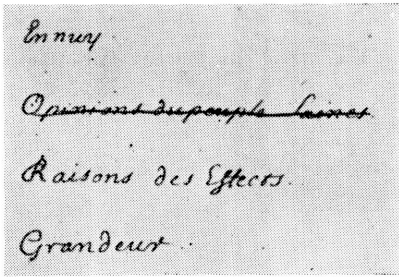 Ennuy
Opinions du peuple saines
Raisons des Effects.
Grandeur